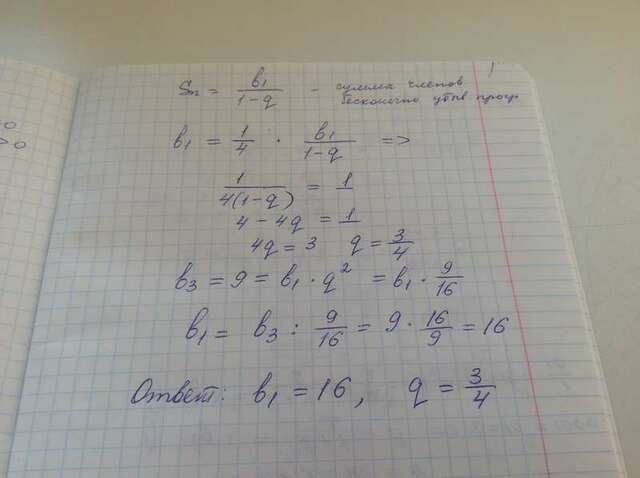 Sn = b₁/(1-q) - сумма членов
бесконечно убыв прогр
b₁ = 1/4 · b₁/(1-q) =>
1/(4(1-q)) = 1
4 - 4q = 1
4q = 3 q = 3/4
b₃ = 9 = b₁ · q² = b₁ · 9/16
b₁ = b₃ : 9/16 = 9 · 16/9 = 16
Ответ: b₁ = 16, q = 3/4